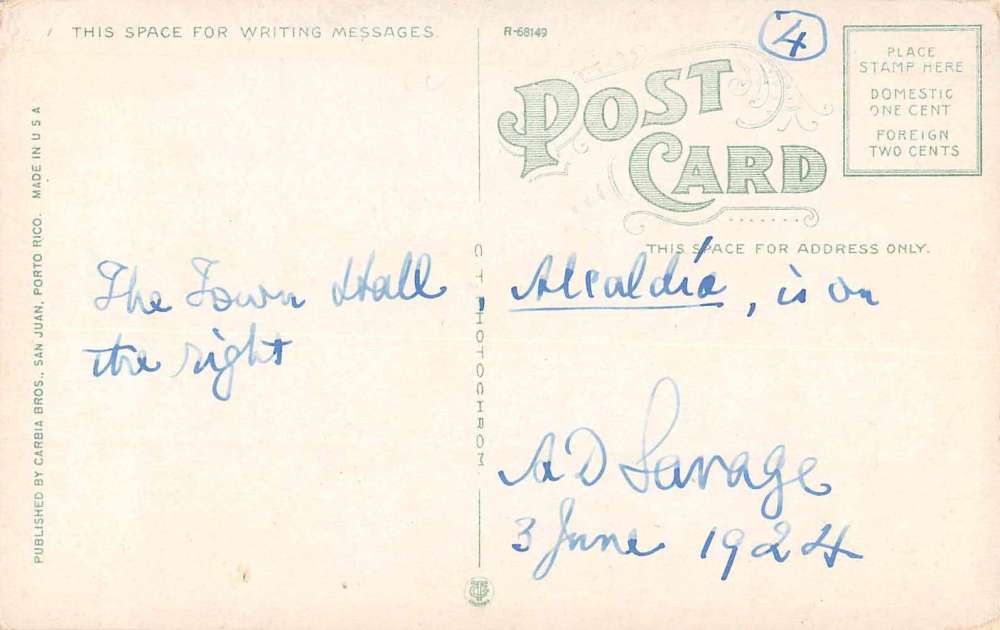 THIS SPACE FOR WRITING MESSAGES.
R-68149
4
PLACE
STAMP HERE
DOMESTIC
ONE CENT
FOREIGN
TWO CENTS
POST
CARD
THIS SPACE FOR ADDRESS ONLY.
PUBLISHED BY CARBIA BROS., SAN JUAN, PORTO RICO. MADE IN U S A
C T PHOTOCHROM
The Town Hall, Alcaldía, is on
the right
A D Savage
3 June 1924